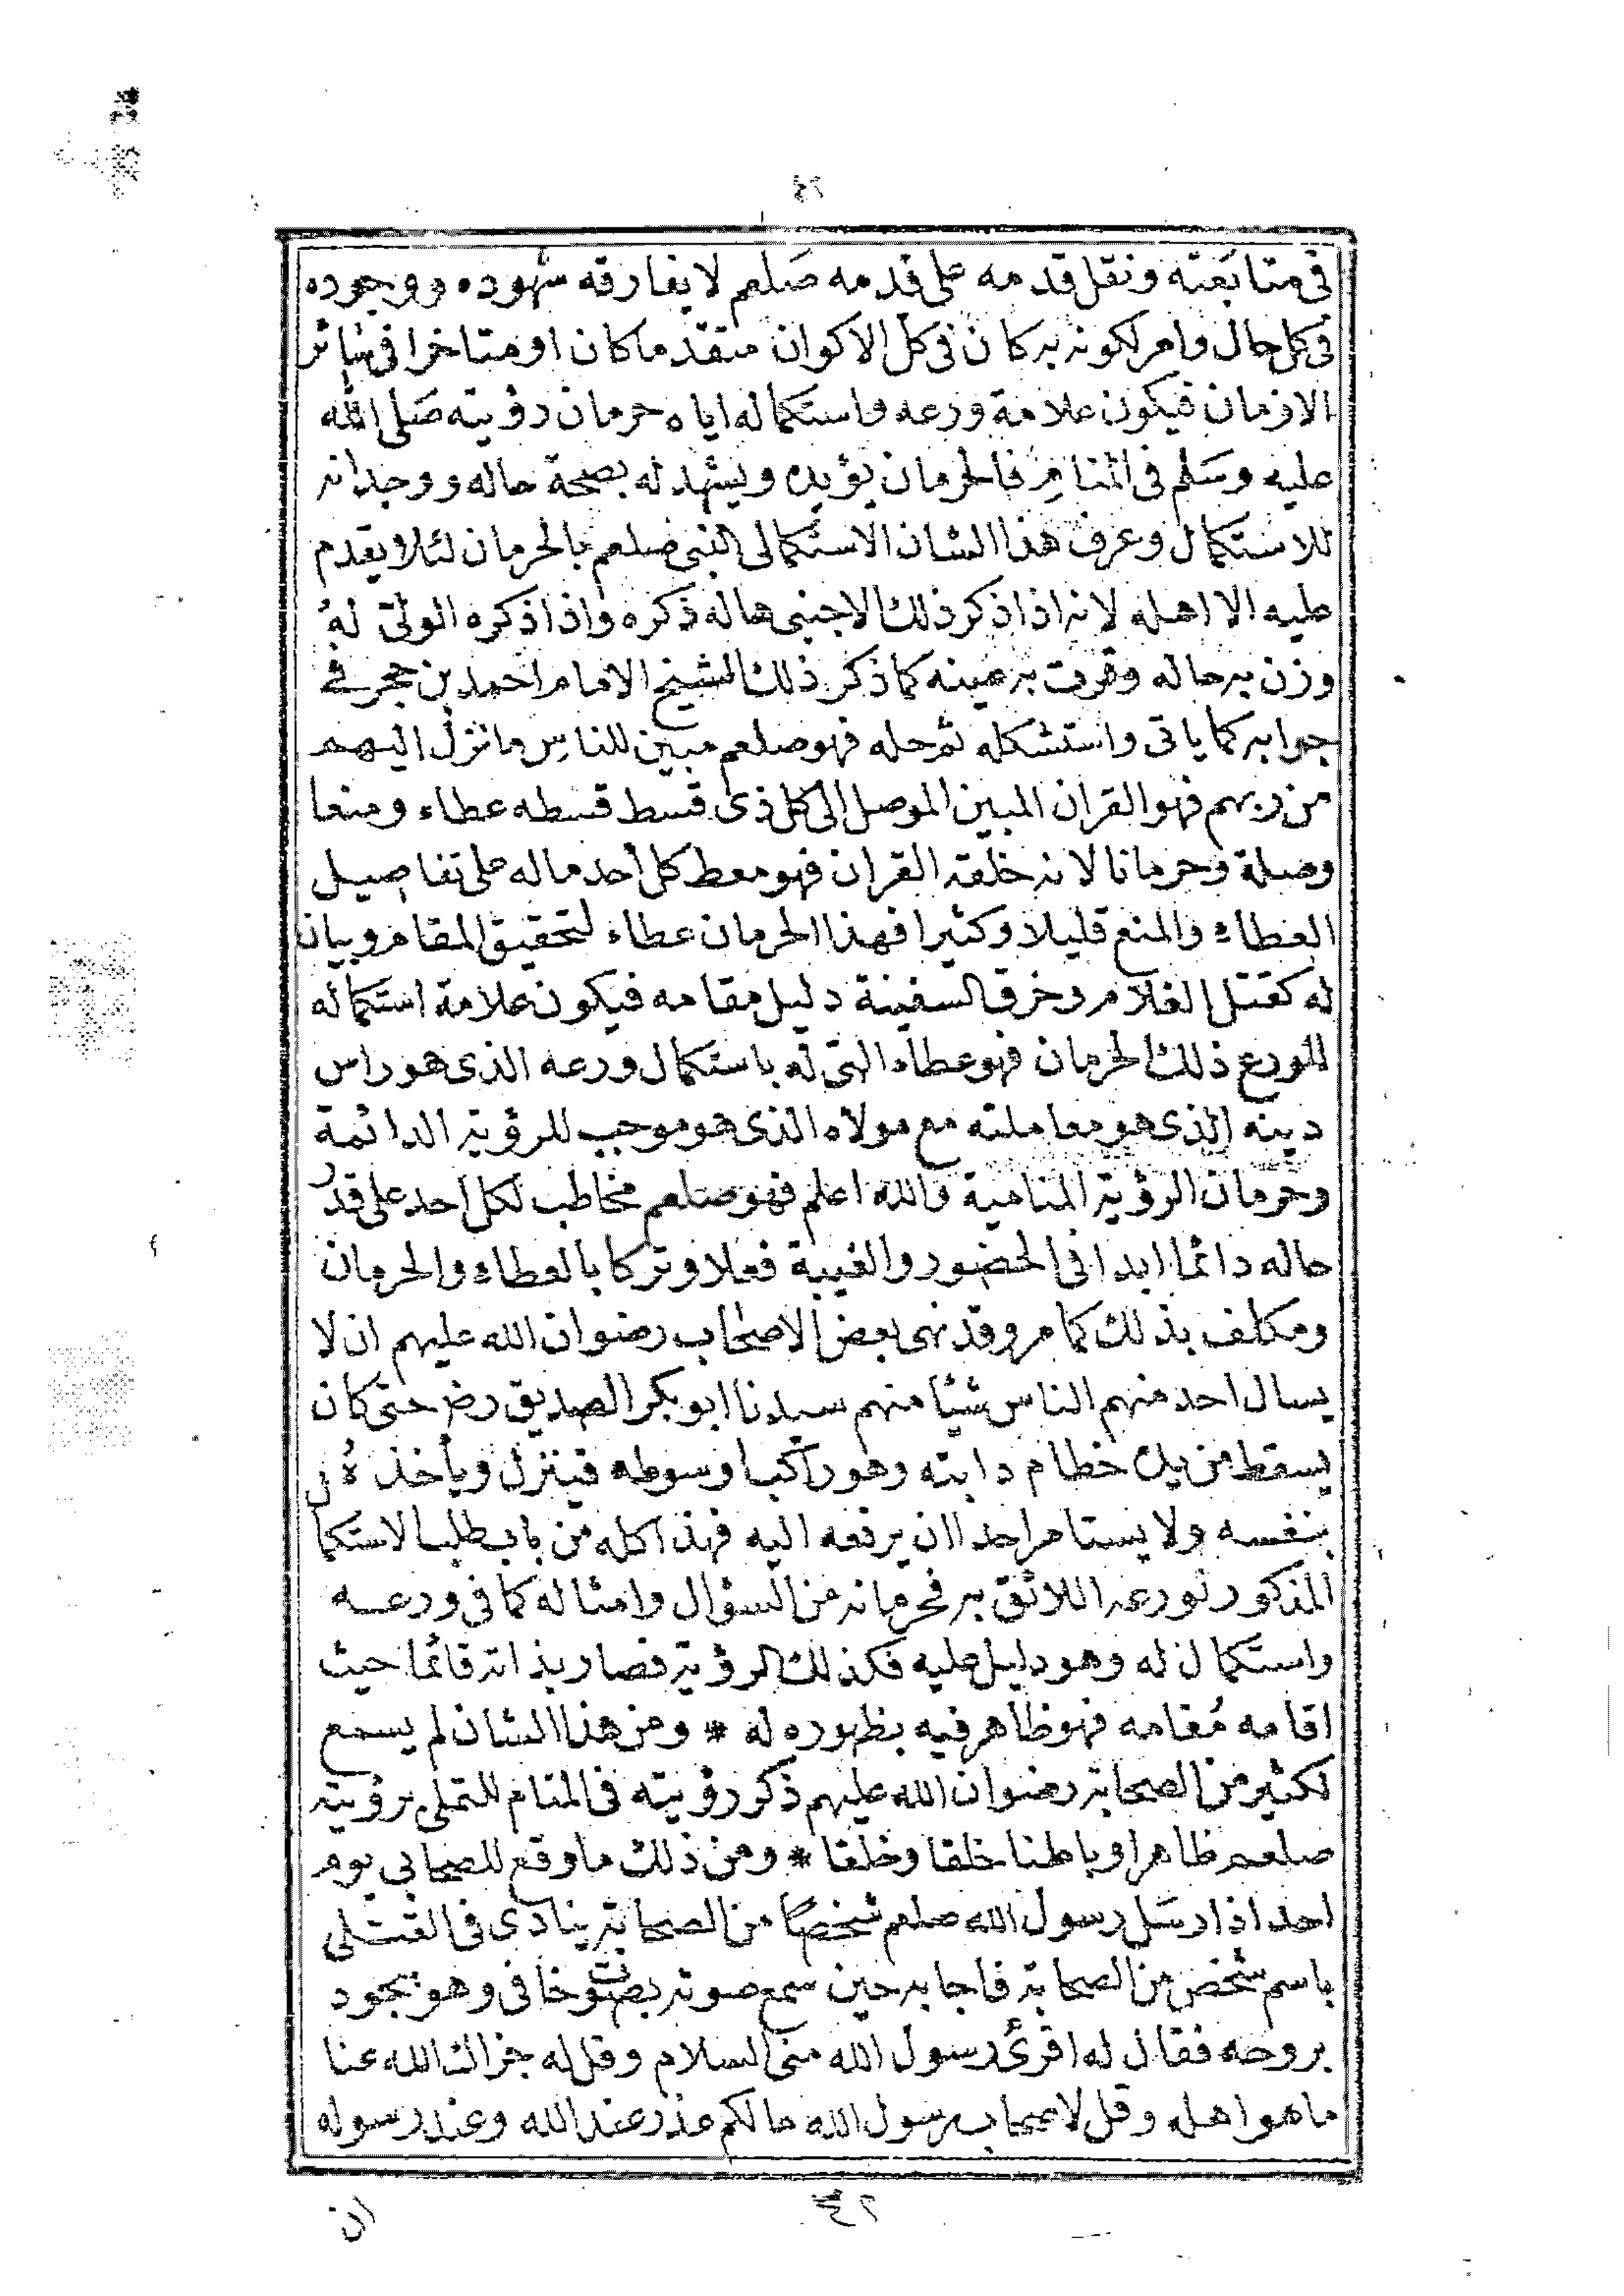 ٤٢
في متابعته ونقل قدمه على قدمه صلعم لا يفارقه شهوده ووجوده
في كل حال وامر لكونه به كان في كل الاكوان متقدما كان او متاخرا في سائر
الازمان فيكون علامة ورعه واستكماله اياه حرمان رؤيته صلى الله
عليه وسلم في المنام فالحرمان يؤيده ويشهد له بصحة حاله ووجدانه
للاستكمال وعرف هذا الشان الاستكمالى النبي صلعم بالحرمان لئلا يقدم
عليه الا اهله لانه اذا ذكر ذلك الاجنبى هاله ذكره واذا ذكره الولى له
وزن به حاله وقرت به عينه كما ذكر ذلك الشيخ الامام احمد بن حجر في
جوابه كما ياتى واستشكله ثم حله فهو صلعم مبين للناس ما نزل اليهم
من ربهم فهو القران المبين الموصل الى كل ذى قسط قسطه عطاء ومنعا
وصلة وحرمانا لانه خلقه القران فهو معط كل احد ماله على تفاصيل
العطاء والمنع قليلا وكثيرا فهذا الحرمان عطاء لتحقيق المقام وبيانه
له كقتل الغلام وخرق السفينة دليل مقامه فيكون علامة استكماله
للورع ذلك الحرمان فهو عطاء الهى له باستكمال ورعه الذى هو راس
دينه الذى هو معاملته مع مولاه الذى هو موجب للرؤية الدائمة
وحرمان الرؤية المنامية والله اعلم فهو صلعم مخاطب لكل احد على قدر
حاله دائما ابدا فى الحضور والغيبة فعلا وتركا بالعطاء والحرمان
ومكلف بذلك كما مر وقد نهى بعض الاصحاب رضوان الله عليهم ان لا
يسال احد منهم الناس شيئا منهم سيدنا ابو بكر الصديق رضـ حتى كان
يسقط من يده خطام دابته وهو راكبا وسوطه فينزل ويأخذه
بنفسه ولا يستامر احدا ان يرفعه اليه فهذا كله من باب طلب الاستكما
المذكور لورعه اللائق به فحرمانه من السؤال وامثاله كما فى ورعه
واستكمال له وهو دليل عليه فكذلك الرؤية فصار بذاته قائما حيث
اقامه مُقامه فهو ظاهر فيه بظهوره له * ومن هذا الشان لم يسمع
لكثير من الصحابة رضوان الله عليهم ذكر رؤيته فى المنام للتملى برؤيته
صلعم ظاهرا وباطنا خلقا وخلقا * ومن ذلك ما وقع للصحابى يوم
احد اذ ارسل رسول الله صلعم شخصا من الصحابة ينادى فى القتلى
باسم شخص من الصحابة فاجابه حين سمع صوته بصوت خافى وهو يجود
بروحه فقال له اقرئ رسول الله منى السلام وقل له جزاك الله عنا
ما هو اهله وقل لاصحاب رسول الله مالكم عذر عند الله وعند رسوله
٤٢
ان